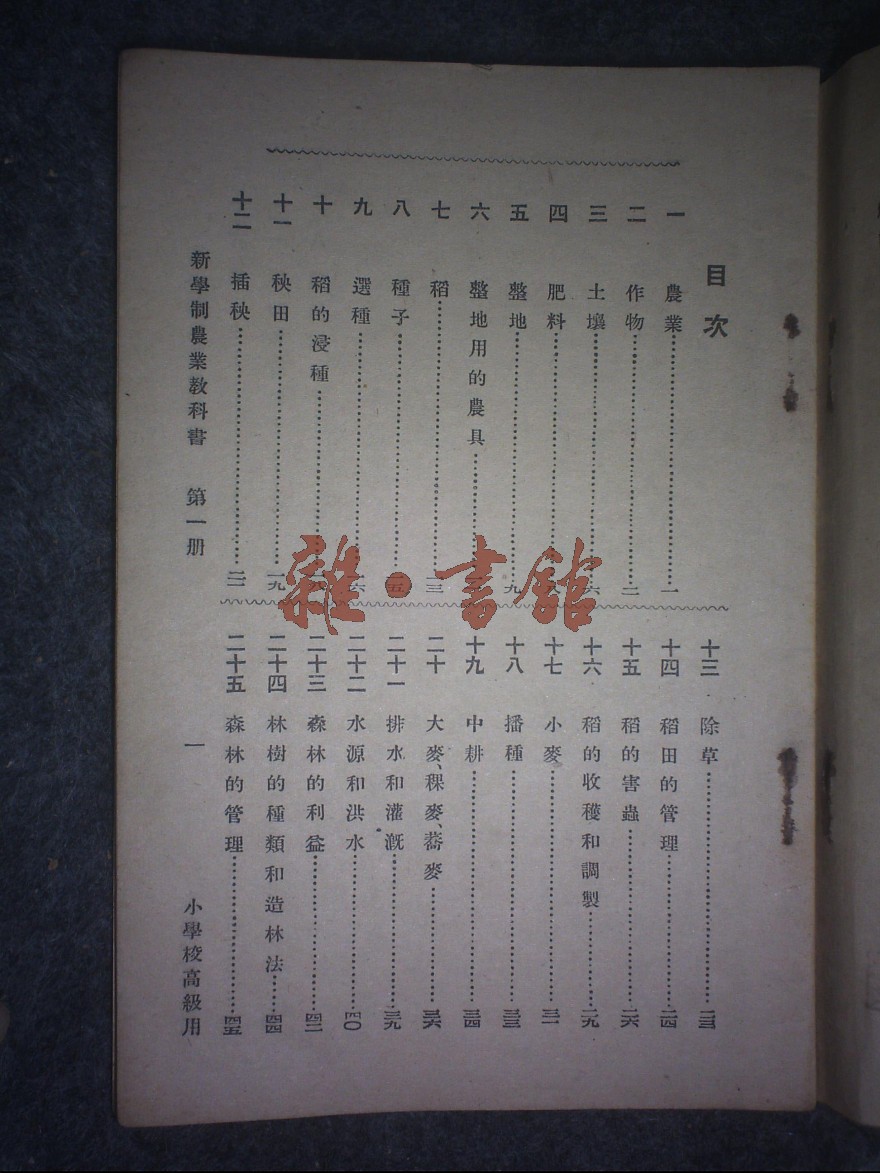 目次
一 農業 一
二 作物 二
三 土壤 六
四 肥料
五 整地 九
六 整地用的農具
七 稻 一三
八 種子 一五
九 選種 一六
十 稻的浸種 一八
十一 秧田 一九
十二 插秧 二一
十三 除草 二三
十四 稻田的管理 二四
十五 稻的害蟲 二六
十六 稻的收穫和調製 二九
十七 小麥 三一
十八 播種 三三
十九 中耕 三四
二十 大麥、稞麥、蕎麥 三六
二十一 排水和灌漑 三九
二十二 水源和洪水 四〇
二十三 森林的利益 四二
二十四 林樹的種類和造林法 四四
二十五 森林的管理 四五
新學制農業教科書 第一册 一 小學校高級用
雜·書館